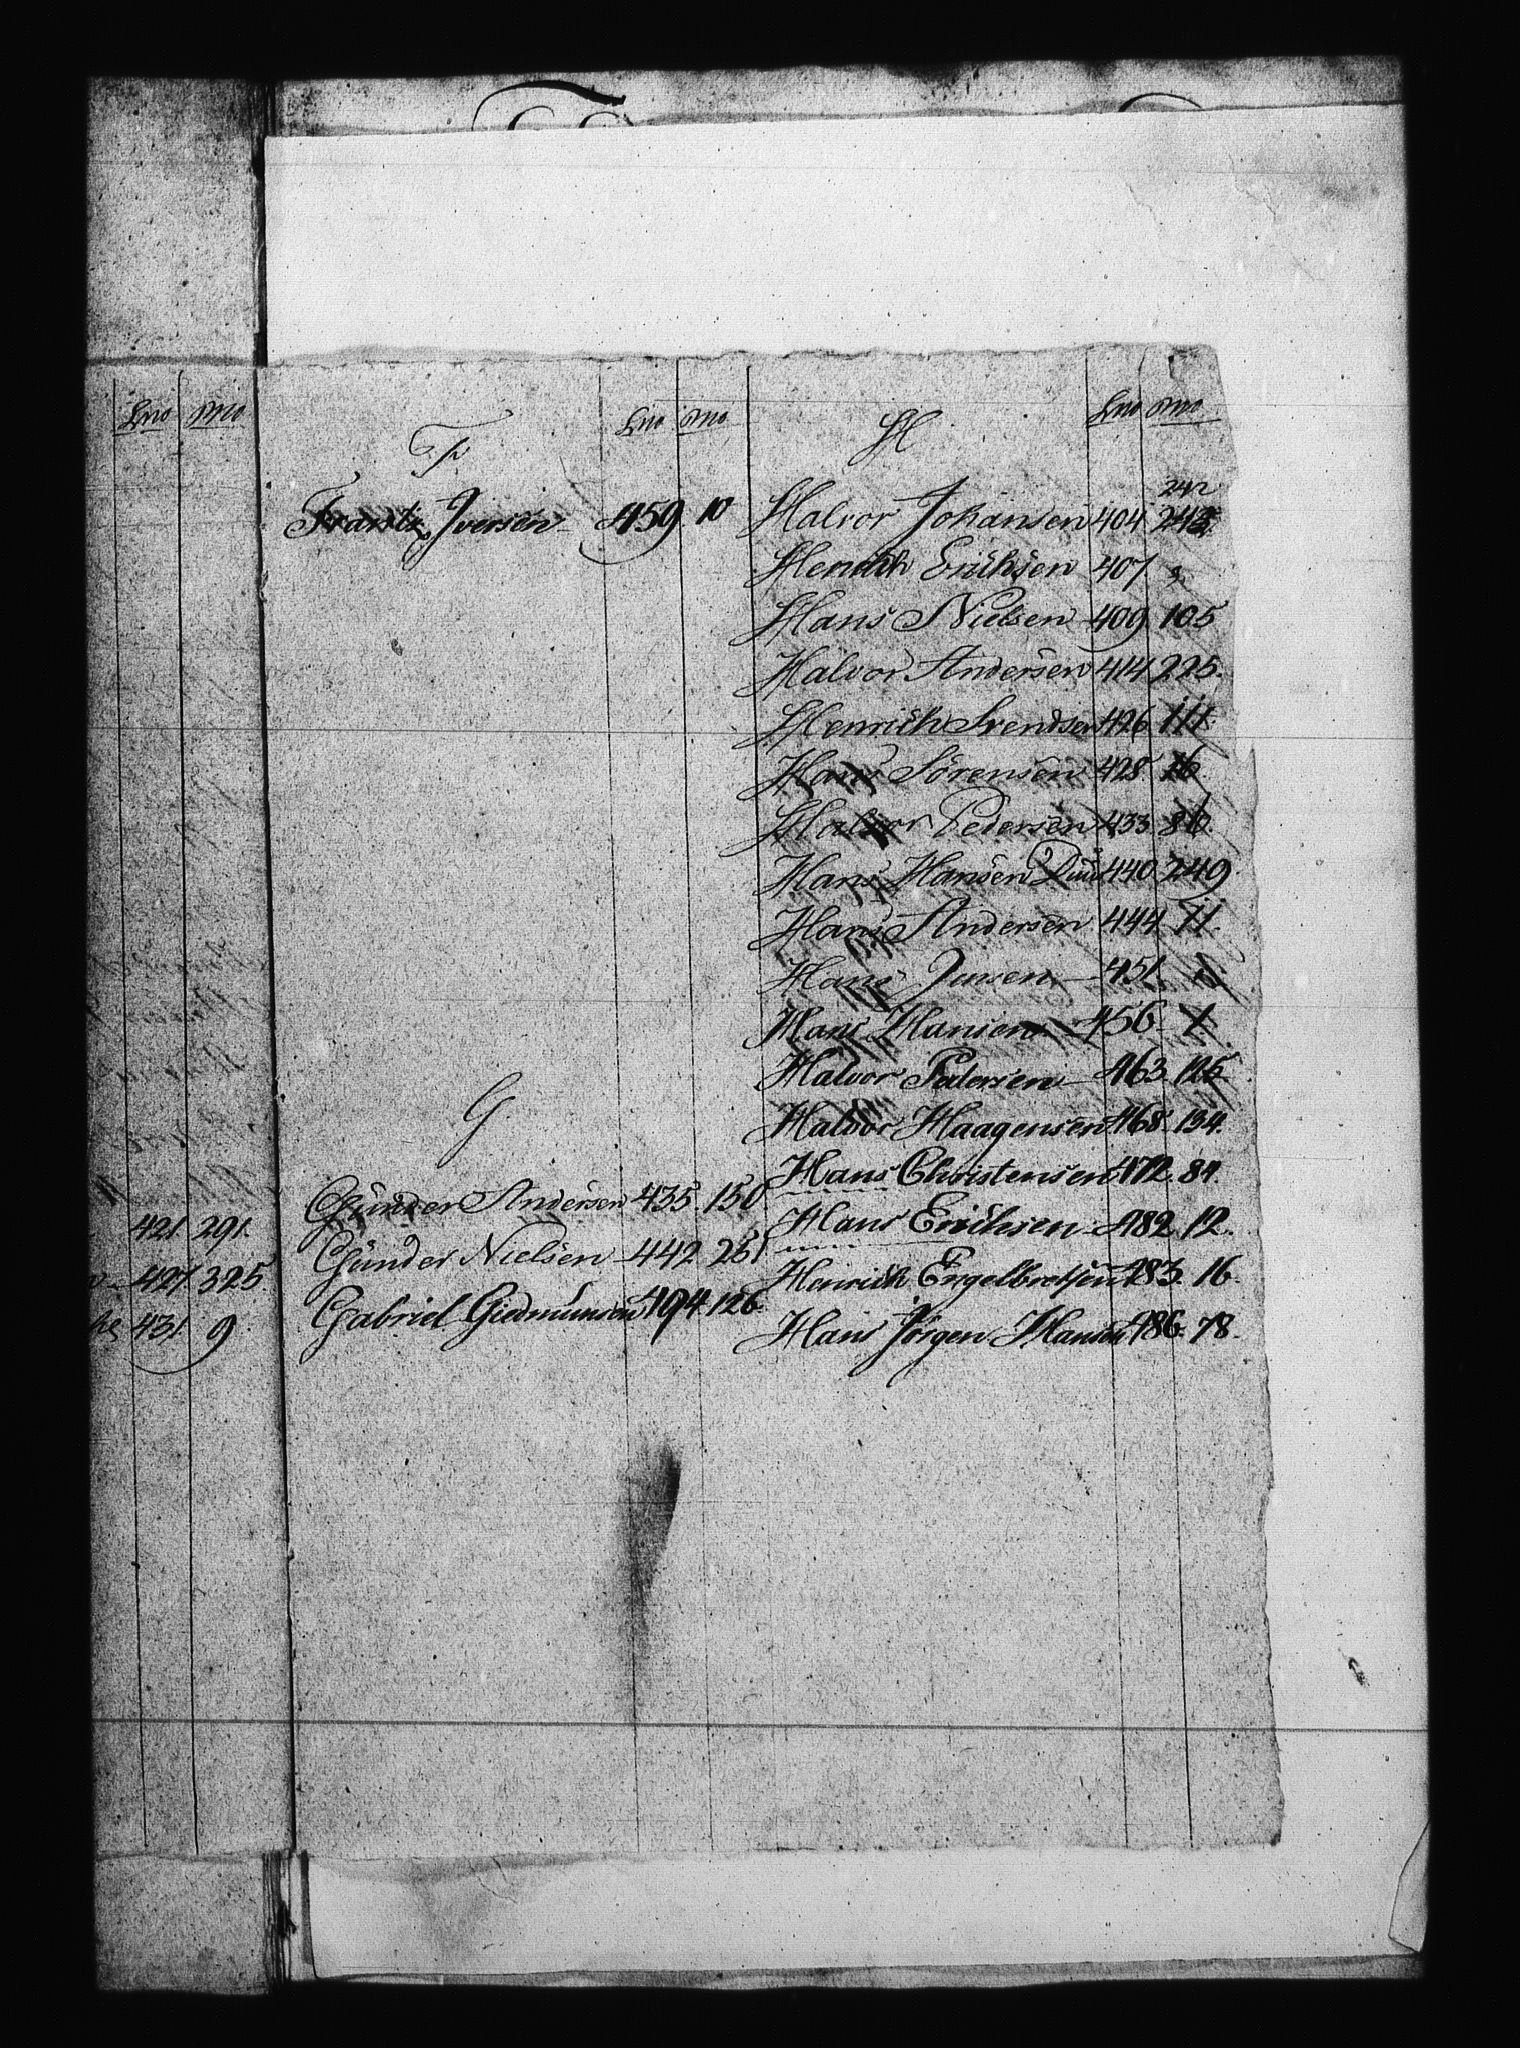 Lno No
421 291.
427 325.
431 9
F
Lno No
Frantz Iversen 459 10
G
Günder Andersen 435. 150
Günder Nielsen 442 251
Gabriel Gudmundsen 494. 126.
H
Lno No
242
Halvor Johansen 404 243
Henrich Erichsen 407 9
Hans Nielsen 409 105
Halvor Andersen 414 225.
Henrich Svendsen 426 111.
Hans Sørensen 428 16.
Halvor Pedersen 433. 86.
Hans Hansen Duus 440 249.
Hans Andersen 444 71.
Hans Jensen 451.
Hans Hansen 456 1.
Halvor Pedersen 463. 125
Halvor Haagensen 468. 134.
Hans Christensen 472. 84.
Hans Erichsen 482. 12.
Heinrich Engelbretsen 483. 16.
Hans Jörgen Hansen 486. 78.